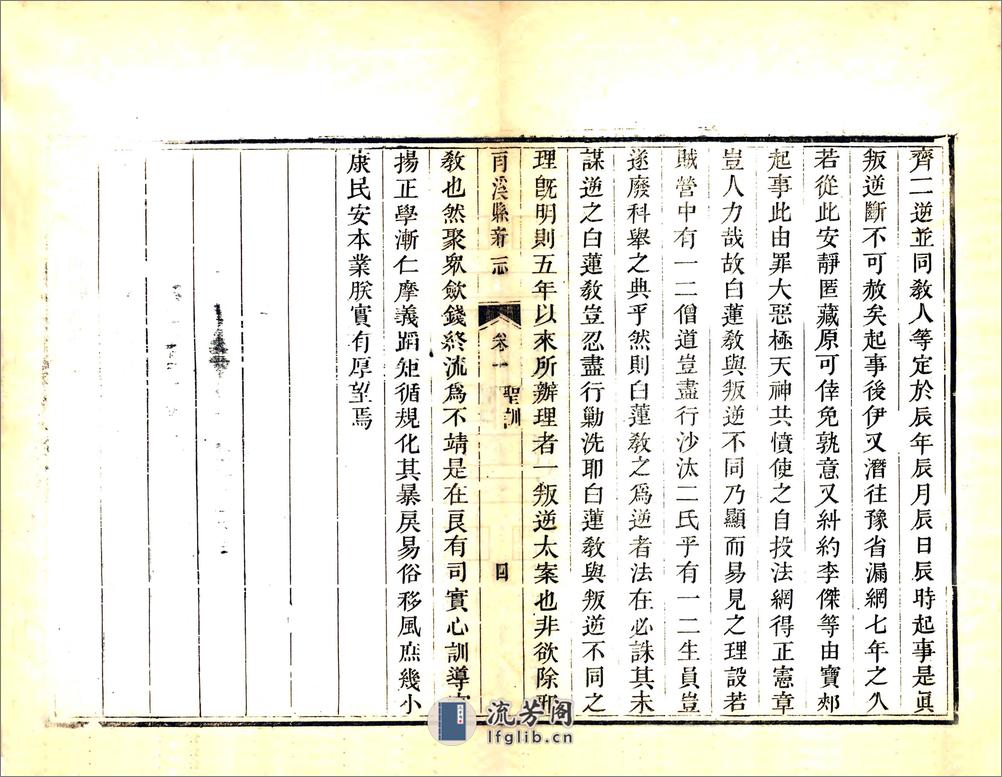 齊二逆並同敎人等定於辰年辰月辰日辰時起事是眞
叛逆斷不可赦矣起事後伊又潛往豫省漏網七年之久
若從此安靜匿藏原可倖免孰意又糾約李傑等由寶郟
起事此由罪大惡極天神共憤使之自投法網得正憲章
豈人力哉故白蓮敎與叛逆不同乃顯而易見之理設若
賊營中有一二僧道豈盡行沙汰二氏乎有一二生員豈
遂廢科舉之典乎然則白蓮敎之爲逆者法在必誅其未
謀逆之白蓮敎豈忍盡行勦洗耶白蓮敎與叛逆不同之
理旣明則五年以來所辦理者一叛逆大案也非欲除邪
溪縣新志 卷一 聖訓 四
敎也然聚衆歛錢終流爲不靖是在良有司實心訓導宣
揚正學漸仁摩義蹈矩循規化其暴戾易俗移風庶幾小
康民安本業朕實有厚望焉
流芳阁
lfglib.cn